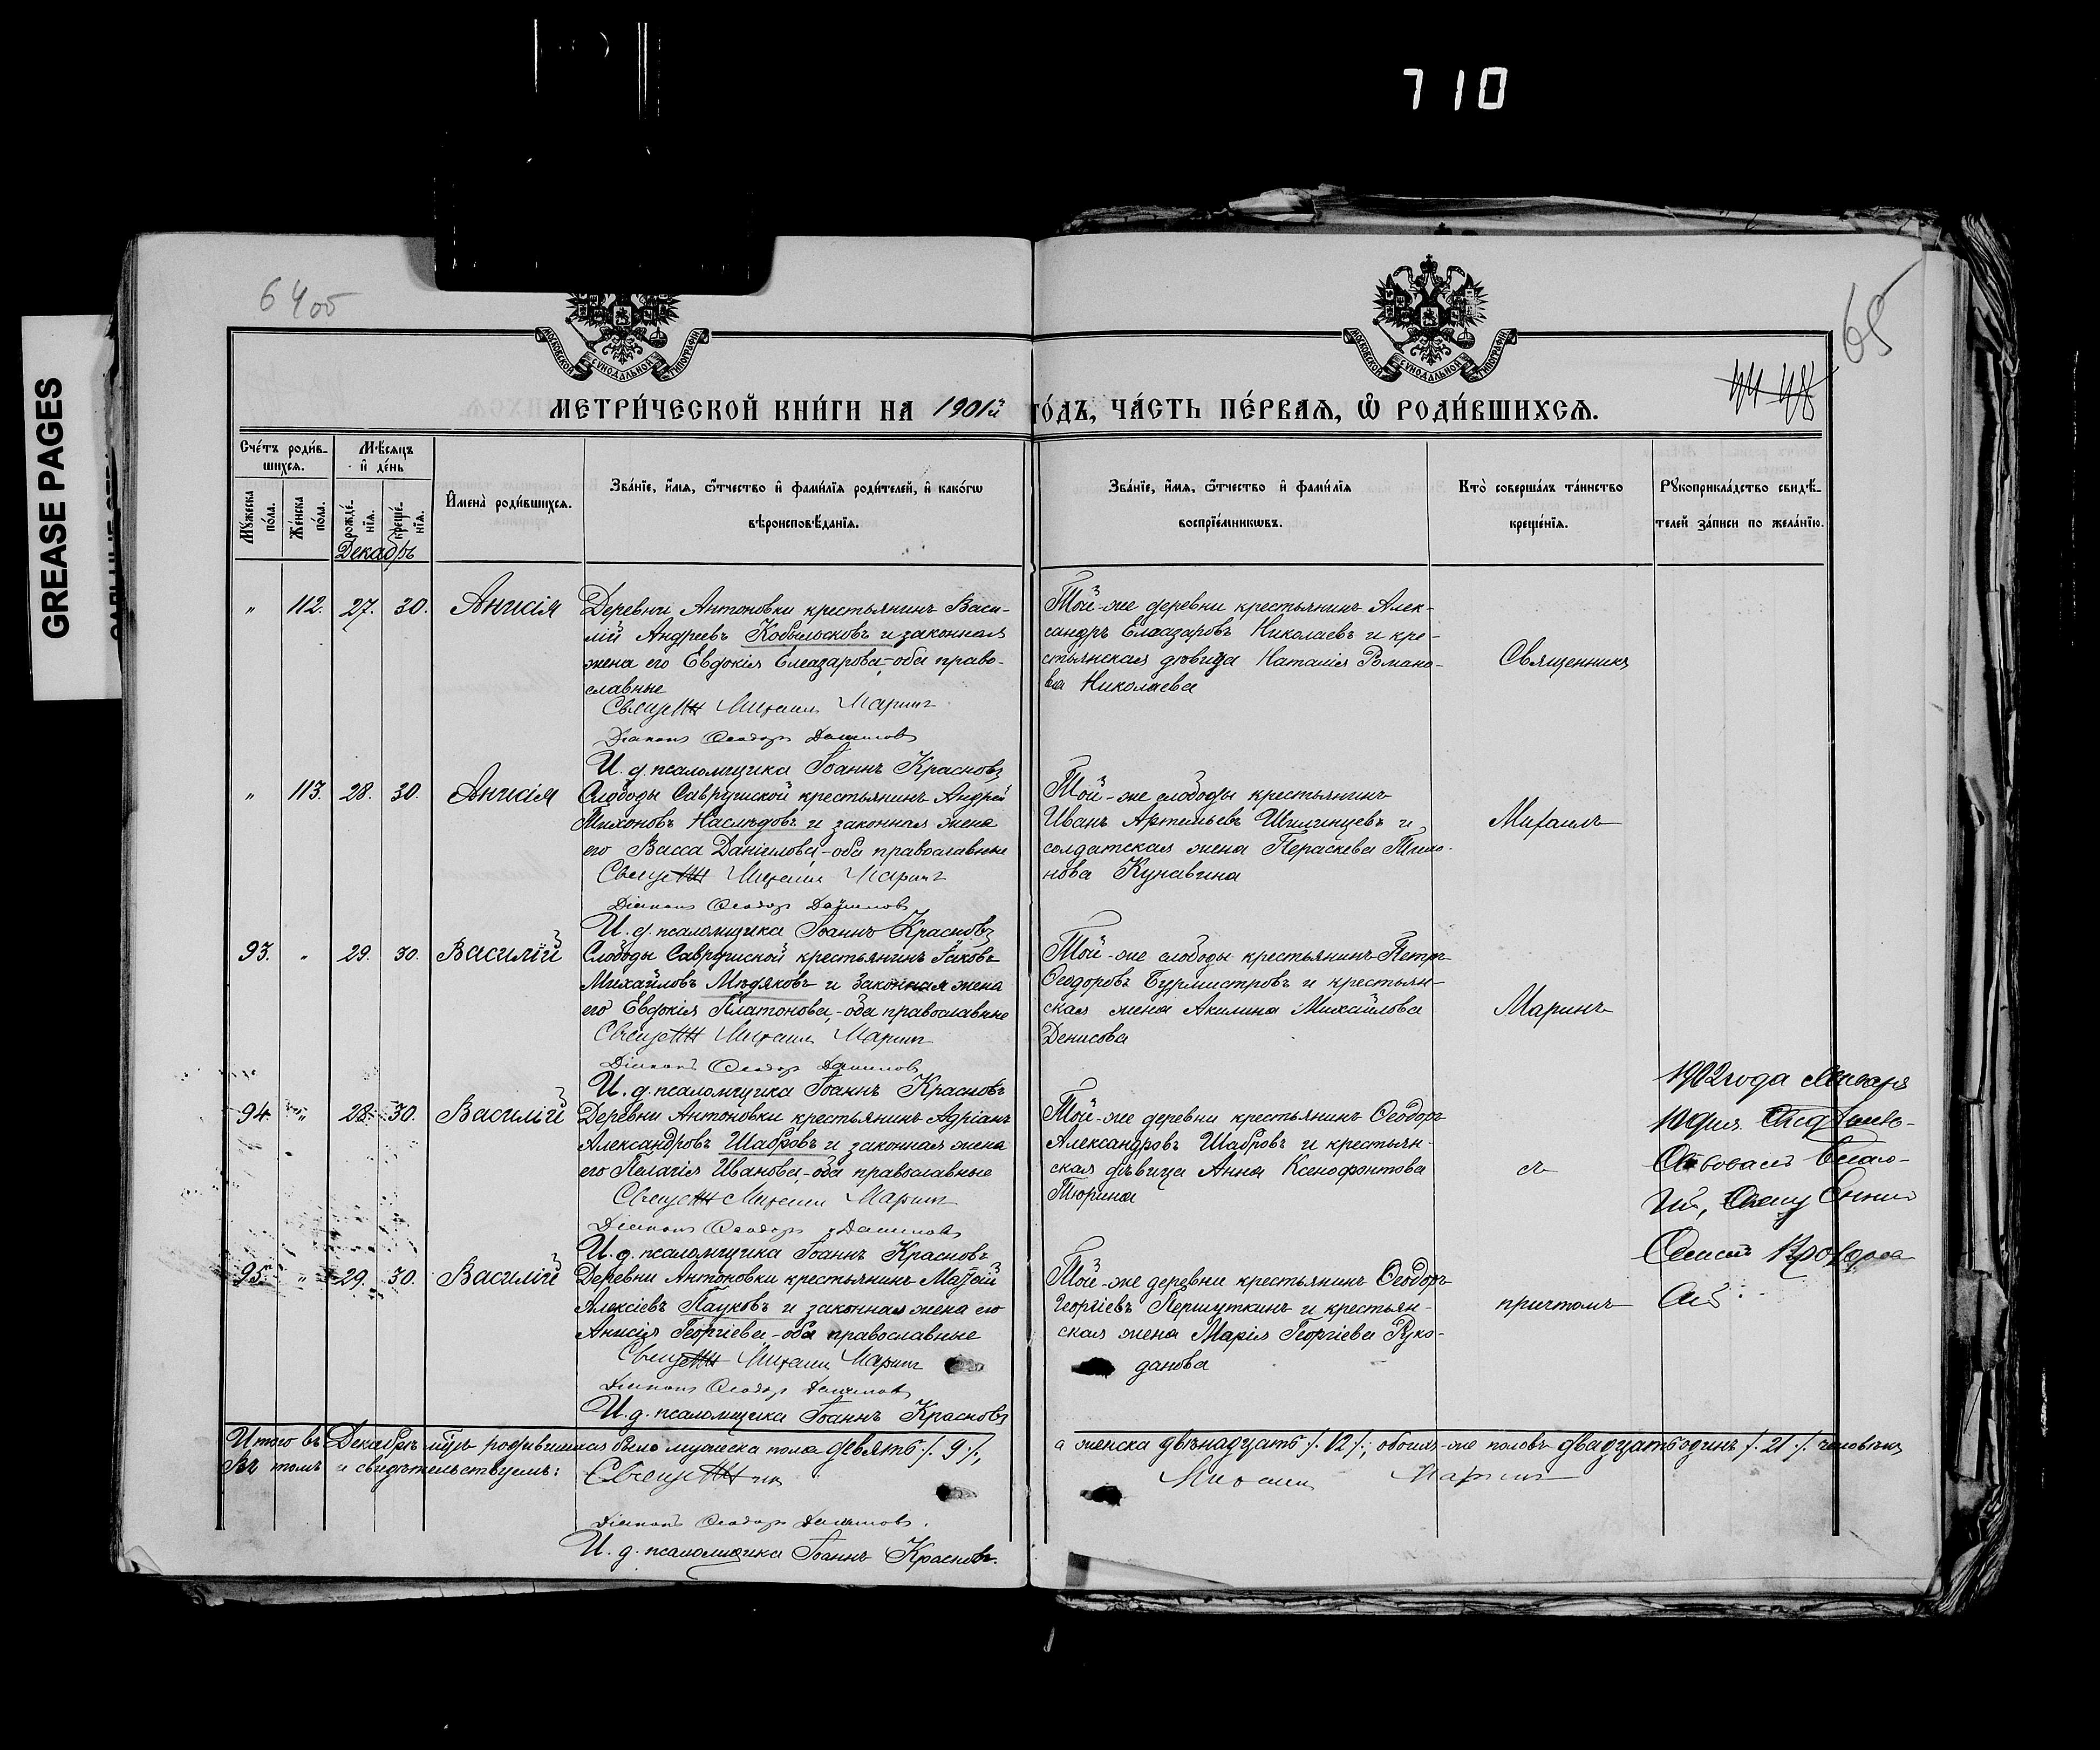 710
GREASE PAGES
64об
65
МОСКОВСКОЙ СѴНОДАЛЬНОЙ ТИПОГРАФІИ
МОСКОВСКОЙ СѴНОДАЛЬНОЙ ТИПОГРАФІИ
МЕТРИ́ЧЕСКОЙ КНИ́ГИ НА 1901й ГО́ДЪ, ЧА́СТЬ ПЕ́РВАѦ, Ѿ РОДИ́ВШИХСѦ.
Сче́тъ роди́в-
шихся.
Мѣсяцъ
и҆ де́нь
И҆мена̀ роди́вшихся.
Зва́нїе, и҆́мя, ѻ҆́тчество и҆ фами́лїя роди́телей, и҆ како́гѡ
вѣроисповѣ́данїя.
Зва́нїе, и҆́мя, ѻ҆́тчество и҆ фами́лїя
воспрїе́мникѡвъ.
Кто̀ соверша́лъ та́инство
креще́нїя.
Рꙋкоприкла́дство свидѣ́-
телей за́писи по жела́нїю.
Мꙋ́жеска
по́ла.
Же́нска
по́ла.
рожде́-
нїя.
креще́-
нїя.
Декабрь
" 112. 27. 30. Анисія
Деревни Антоновки крестьянинъ Васи-
лій Андреевъ Кобылосковъ и законная
жена его Евдокія Елеазарова,-оба право-
славные
Священ Михаилъ Маринъ
Діаконъ Ѳеодоръ Даниловъ
И. д. псаломщика Іоаннъ Красновъ
Той-же деревни крестьянинъ Алек-
сандръ Елеазаровъ Николаевъ и кре-
стьянская дѣвица Наталія Романо-
ва Николаева
Священникъ
" 113. 28. 30. Анисія
Слободы Саврушской крестьянинъ Андрей
Тихоновъ Наслѣдовъ и законная жена
его Васса Даніилова,-оба православные
Священ Михаилъ Маринъ
Діаконъ Ѳеодоръ Даниловъ
И. д. псаломщика Іоаннъ Красновъ
Той-же слободы крестьянинъ
Иванъ Артемьевъ и
солдатская жена Параскева Тихо-
нова Кунавина
Михаилъ
93. " 29. 30. Василій
Слободы Саврушской крестьянинъ Іаковъ
Михайловъ Мѣдяковъ и законная жена
его Евдокія Платонова,-оба православные
Священ Михаилъ Маринъ
Діаконъ Ѳеодоръ Даниловъ
И. д. псаломщика Іоаннъ Красновъ
Той-же слободы крестьянинъ Петръ
Ѳеодоровъ Бурмистровъ и крестьян-
ская жена Акилина Михайлова
Денисова
Маринъ
94. " 28. 30. Василій
Деревни Антоновки крестьянинъ Адріанъ
Александровъ Шабровъ и законная жена
его Пелагія Иванова,-оба православные
Священ Михаилъ Маринъ
Діаконъ Ѳеодоръ Даниловъ
И. д. псаломщика Іоаннъ Красновъ
Той-же деревни крестьянинъ Ѳеодоръ
Александровъ Шабровъ и крестьян-
ская дѣвица Анна Ксенофонтова
Тюрина
съ
1902 года Января
10 дня
95. " 29. 30. Василій
Деревни Антоновки крестьянинъ Матѳій
Алексіевъ Пауковъ и законная жена его
Анисія Георгіева,-оба православные
Священ Михаилъ Маринъ
Діаконъ Ѳеодоръ Даниловъ
И. д. псаломщика Іоаннъ Красновъ
Той-же деревни крестьянинъ Ѳеодоръ
Георгіевъ Першуткинъ и крестьян-
ская жена Марія Георгіева Руко-
данова
причтомъ
Итого въ Декабрѣ мцѣ родившихся было мужеска пола девять /. 9 /., а женска двѣнадцать /. 12 /.; обоихъ-же половъ двадцать одинъ /. 21 /. человѣкъ
Въ томъ и свидѣтельствуемъ: Священникъ Михаилъ Маринъ
Діаконъ Ѳеодоръ Даниловъ.
И. д. псаломщика Іоаннъ Красновъ.